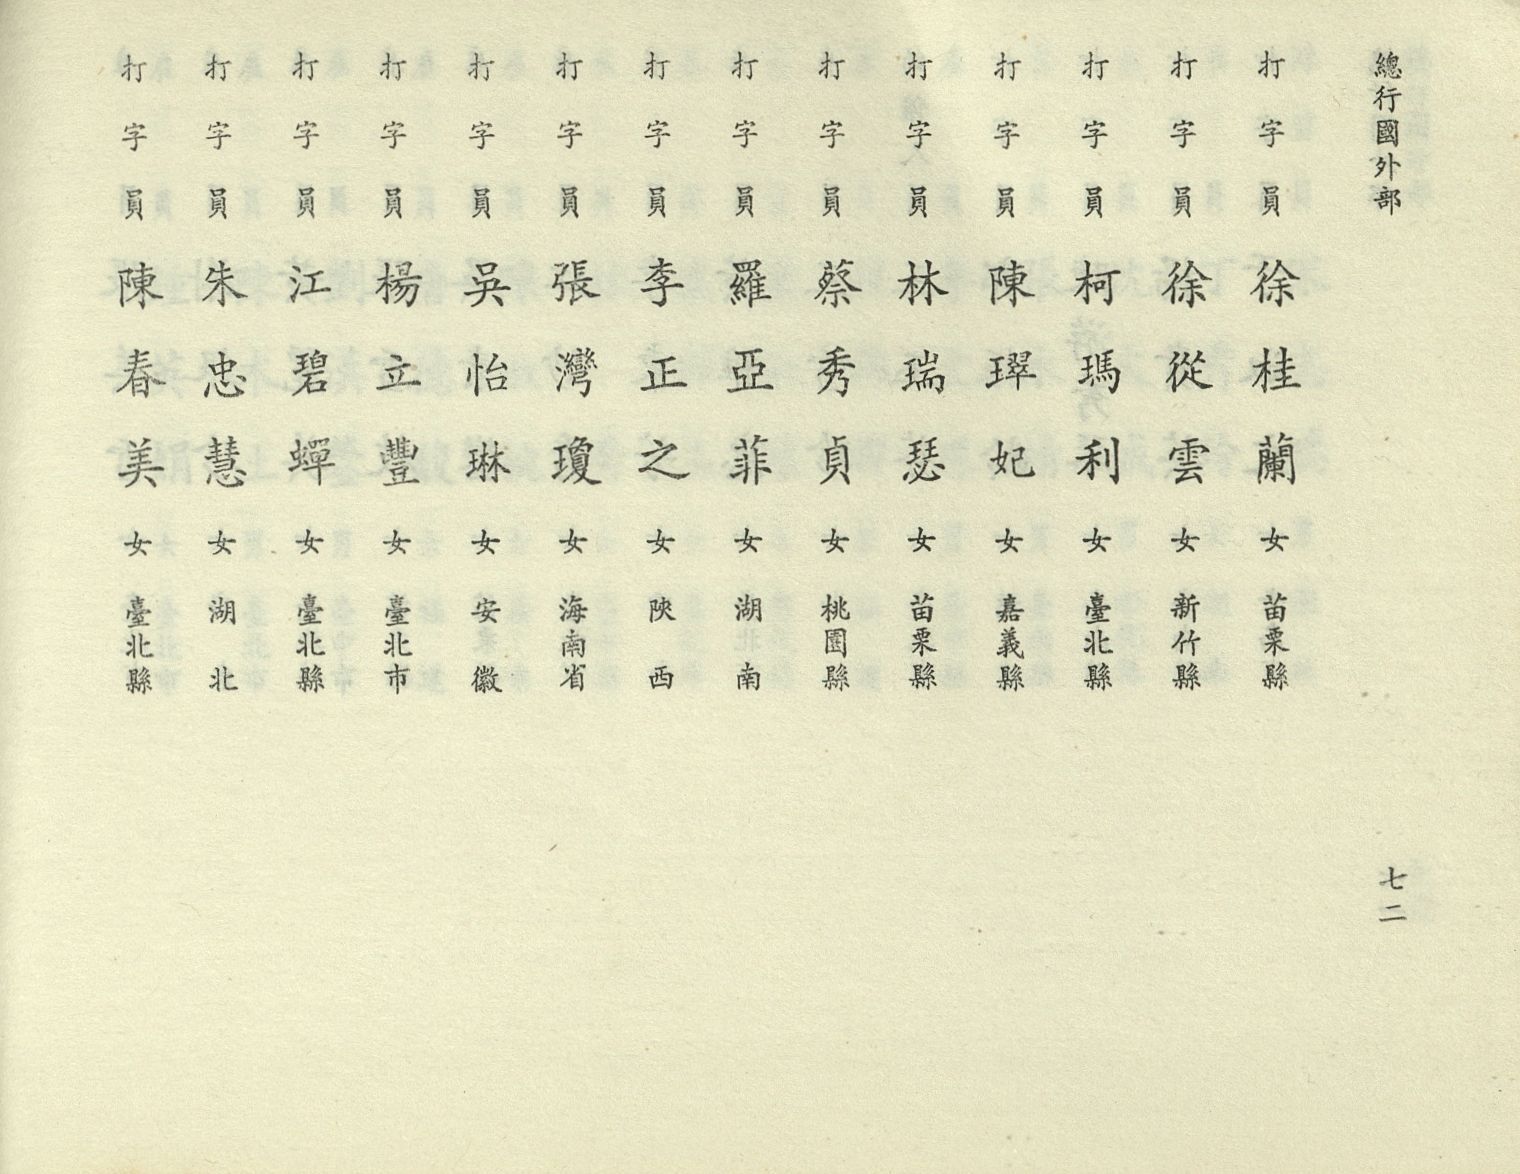 總行國外部
七二
打字員 徐桂蘭 女 苗栗縣
打字員 徐從雲 女 新竹縣
打字員 柯瑪利 女 臺北縣
打字員 陳璻妃 女 嘉義縣
打字員 林瑞瑟 女 苗栗縣
打字員 蔡秀貞 女 桃園縣
打字員 羅亞菲 女 湖南
打字員 李正之 女 陝西
打字員 張灣瓊 女 海南省
打字員 吳怡琳 女 安徽
打字員 楊立豐 女 臺北市
打字員 江碧蟬 女 臺北縣
打字員 朱忠慧 女 湖北
打字員 陳春美 女 臺北縣